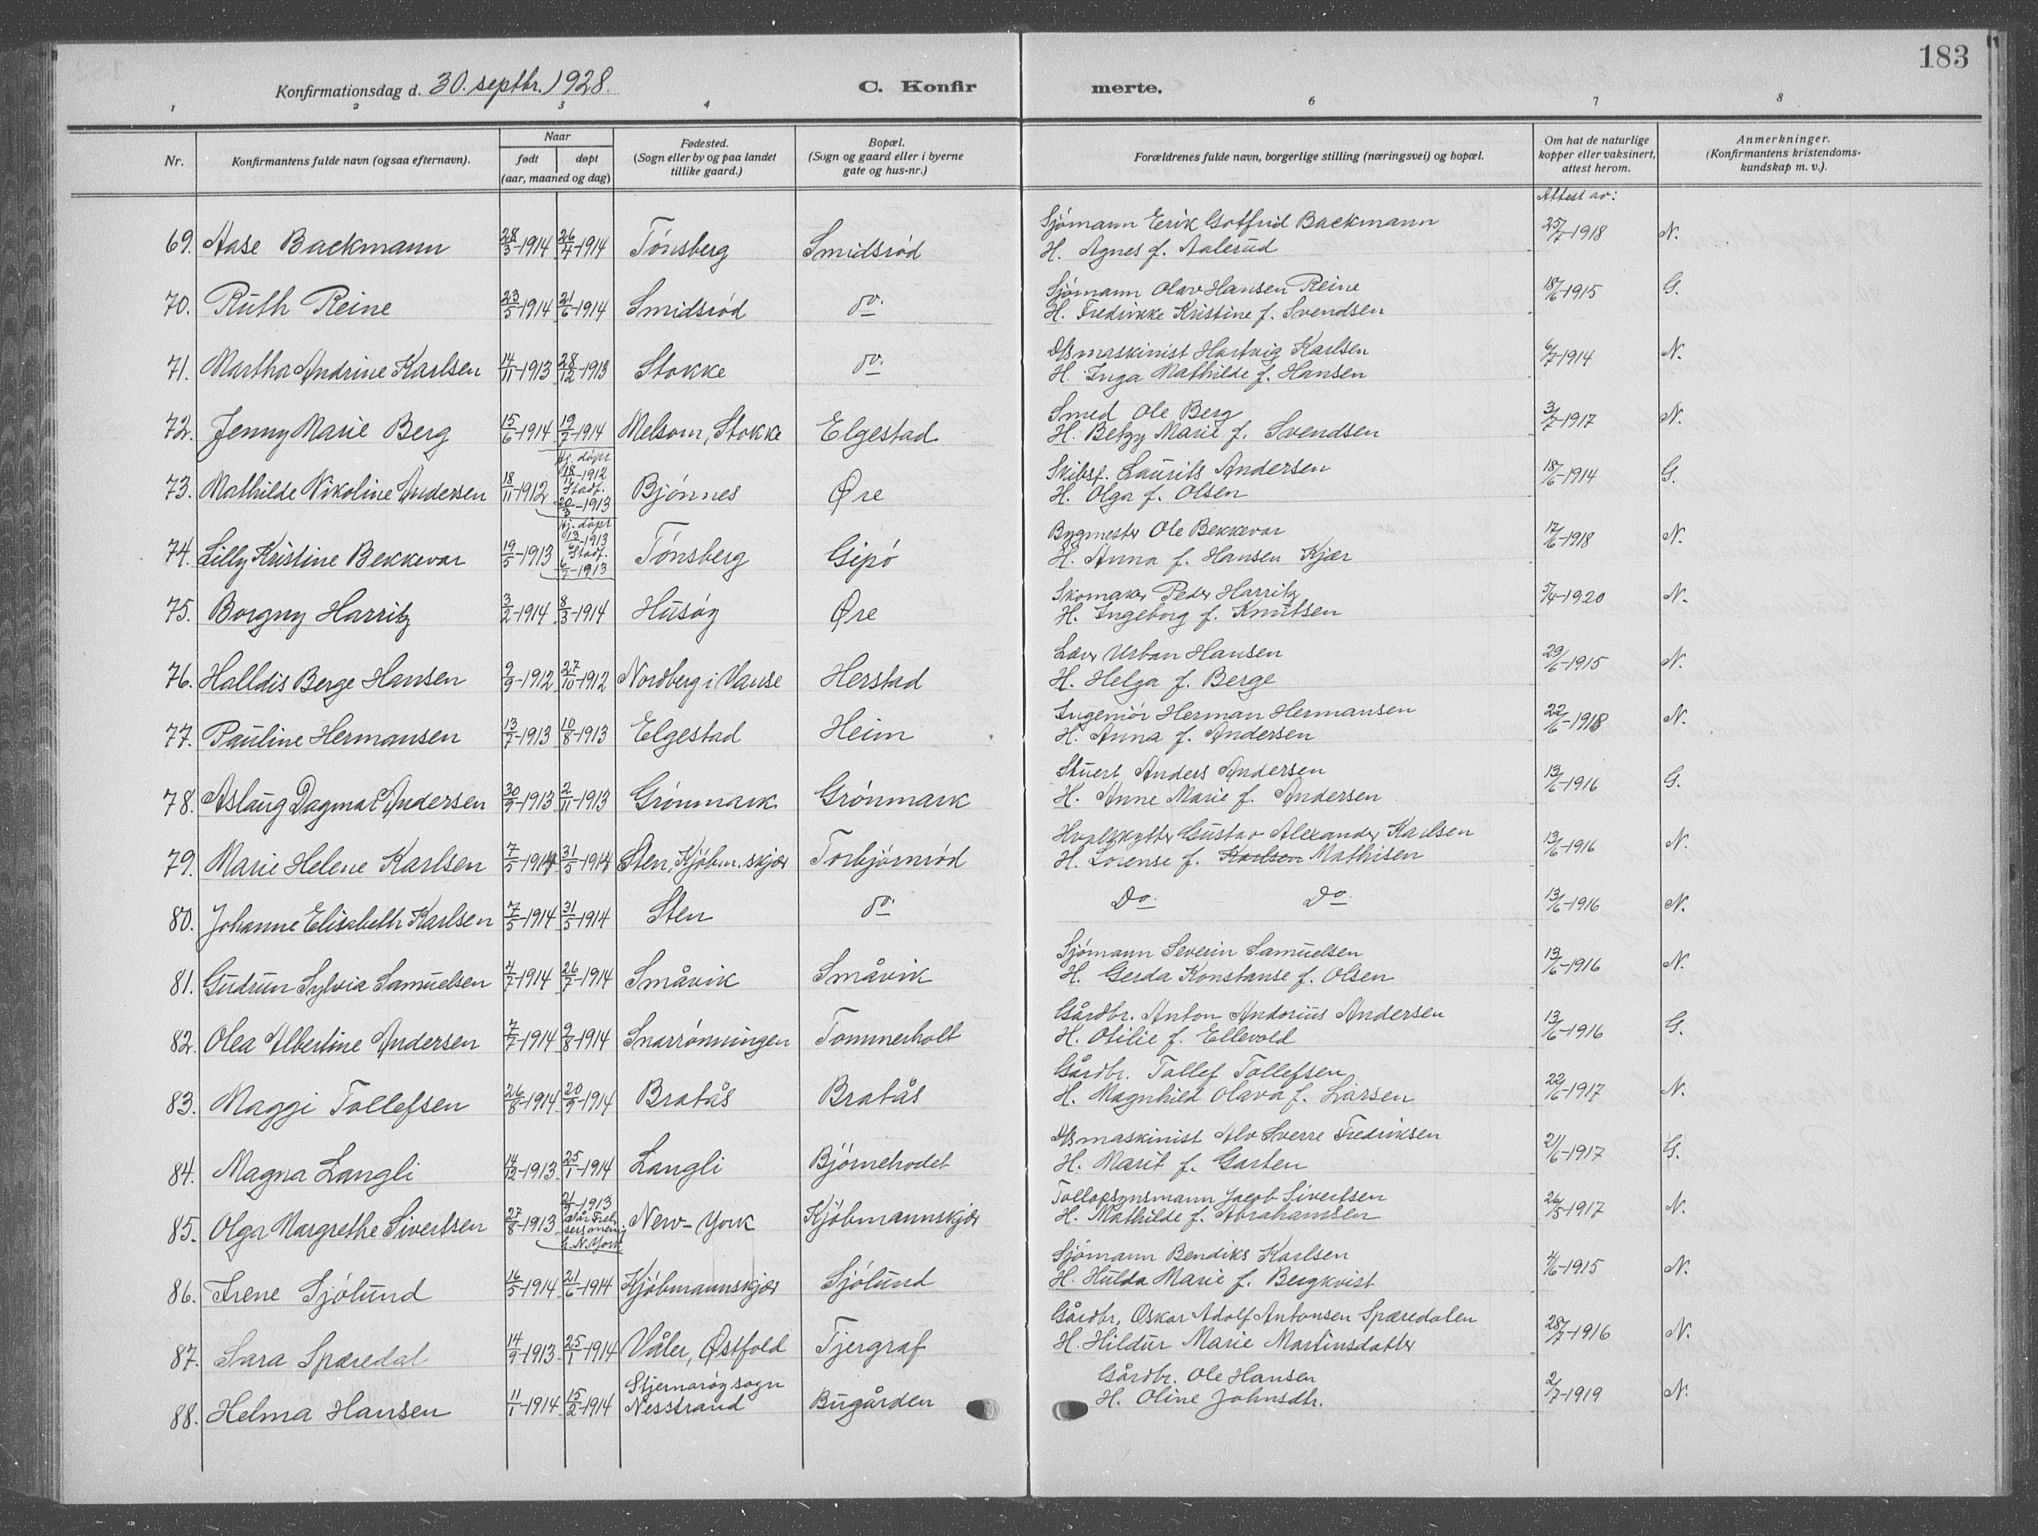 183
Konfirmationsdag d. 30. septbr. 1928.
C. Konfir merte.
1 2 3 4 5 6 7 8
Nr. Konfirmantens fulde navn (ogsaa efternavn). Naar født døpt (aar, maaned og dag) Fødested. (Sogn eller by og paa landet tillike gaard.) Bopæl. (Sogn og gaard eller i byerne gate og hus-nr.) Forældrenes fulde navn, borgerlige stilling (næringsvei) og bopæl. Om hat de naturlige kopper eller vaksinert, attest herom. Anmerkninger. (Konfirmantens kristendoms-kundskap m. v.).
Attest av:
69. Aase Backmann 28/3-1914 26/4-1914 Tønsberg Smidsrød Sjømann Erik Gotfrid Backmann 25/7-1918 N.
H. Agnes f. Aalerud
70. Ruth Reine 23/5-1914 21/6-1914 Smidsrød do. Sjømann Olav Hansen Reine 18/6-1915 G.
H. Fredrikke Kristine f. Svendsen
71. Martha Andrine Karlsen 14/11-1913 28/12-1913 Stokke do. D/Smaskinist Hartvig Karlsen 6/7-1914 N.
H. Inga Mathilde f. Hansen
72. Jenny Marie Berg 15/6-1914 19/7-1914 Melsom, Stokke Elgestad Smed Ole Berg 3/7-1917 N.
H. Betzy Marie f. Svendsen
73. Mathilde Nikoline Andersen 18/11-1912 Hj. døpt 18/11-1912 Stadf. 20/3-1913 Bjønnes Øre Skibsf. Laurits Andersen 18/6-1914 G.
H. Olga f. Olsen
74. Lilly Kristine Bekkevar 19/5-1913 Hj. døpt 13/6-1913 Stadf. 6/7-1913 Tønsberg Gipø Bygmester Ole Bekkevar 17/6-1918 N.
H. Anna f. Hansen Kjær
75. Borgny Harritz 3/2-1914 8/3-1914 Husøy Øre Skomaker Peder Harritz 5/4-1920 N.
H. Ingeborg f. Knutsen
76. Halldis Berge Hansen 9/9-1912 27/10-1912 Nordberg i Vanse Herstad Lærer Urban Hansen 29/6-1915 N.
H. Helga f. Berge
77. Pauline Hermansen 13/7-1913 10/8-1913 Elgestad Heim Ingeniør Herman Hermansen 22/6-1918 N.
H. Anna f. Andersen
78. Aslaug Dagmar Andersen 30/9-1913 2/11-1913 Grønmark Grønmark Stuert Anders Andersen 13/6-1916 G.
H. Anne Marie f. Andersen
79. Marie Helene Karlsen 7/5-1914 31/5-1914 Sten, Kjøbm.skjær Torbjørnrød Hvalskytter Gustav Alexander Karlsen 13/6-1916 N.
H. Lorense f. Karlsen Mathisen
80. Johanne Elisabeth Karlsen 7/5-1914 31/5-1914 Sten do. Do. Do. 13/6-1916 N.
81. Gudrun Sylvia Samuelsen 4/7-1914 26/7-1914 Småvik Småvik Sjømann Severin Samuelsen 13/6-1916 N.
H. Gerda Konstanse f. Olsen
82. Olea Albertine Andersen 7/7-1914 9/8-1914 Snarrønningen Tommerholt Gårdbr. Anton Andorius Andersen 13/6-1916 G.
H. Otilie f. Ellevold
83. Maggi Tollefsen 26/8-1914 20/9-1914 Bratås Bratås Gårdbr. Tollef Tollefsen 22/6-1917 N.
H. Magnhild Olava f. Larsen
84. Magna Langli 14/12-1913 25/1-1914 Langli Bjørnehodet D/Smaskinist Alv Sverre Fredriksen 21/6-1917 G.
H. Marit f. Garten
85. Olga Margrethe Sivertsen 27/8-1913 New-York Kjøbmannskjær Tollopsynsmann Jacob Sivertsen 26/5-1917 N.
H. Mathilde f. Abrahamsen
86. Irene Sjølund 16/5-1914 21/6-1914 Kjøbmannskjær Sjølund Sjømann Bendiks Karlsen 4/6-1915 N.
H. Hulda Marie f. Bergkvist
87. Sara Spæredal 14/9-1913 25/1-1914 Våler, Østfold Tjergraf Gårdbr. Oskar Adolf Antonsen Spæredalen 28/7-1916 N.
H. Hildur Marie Martinsdatter
88. Helma Hansen 11/1-1914 15/2-1914 Stjernarøy sogn Nesstrand Bugården Gårdbr. Ole Hansen 2/7-1919 N.
H. Oline Johnsdtr.